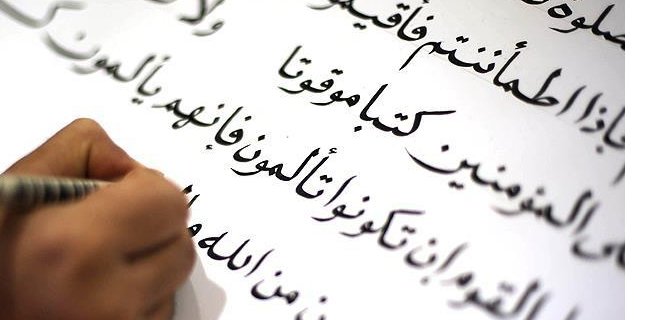 لصلوة
فإذا اطمأننتم فأقيمو
على المؤمنين كتبا موقوتا ولا
القوم إن تكونوا تألمون فإنهم يألمون
ن من الله ما